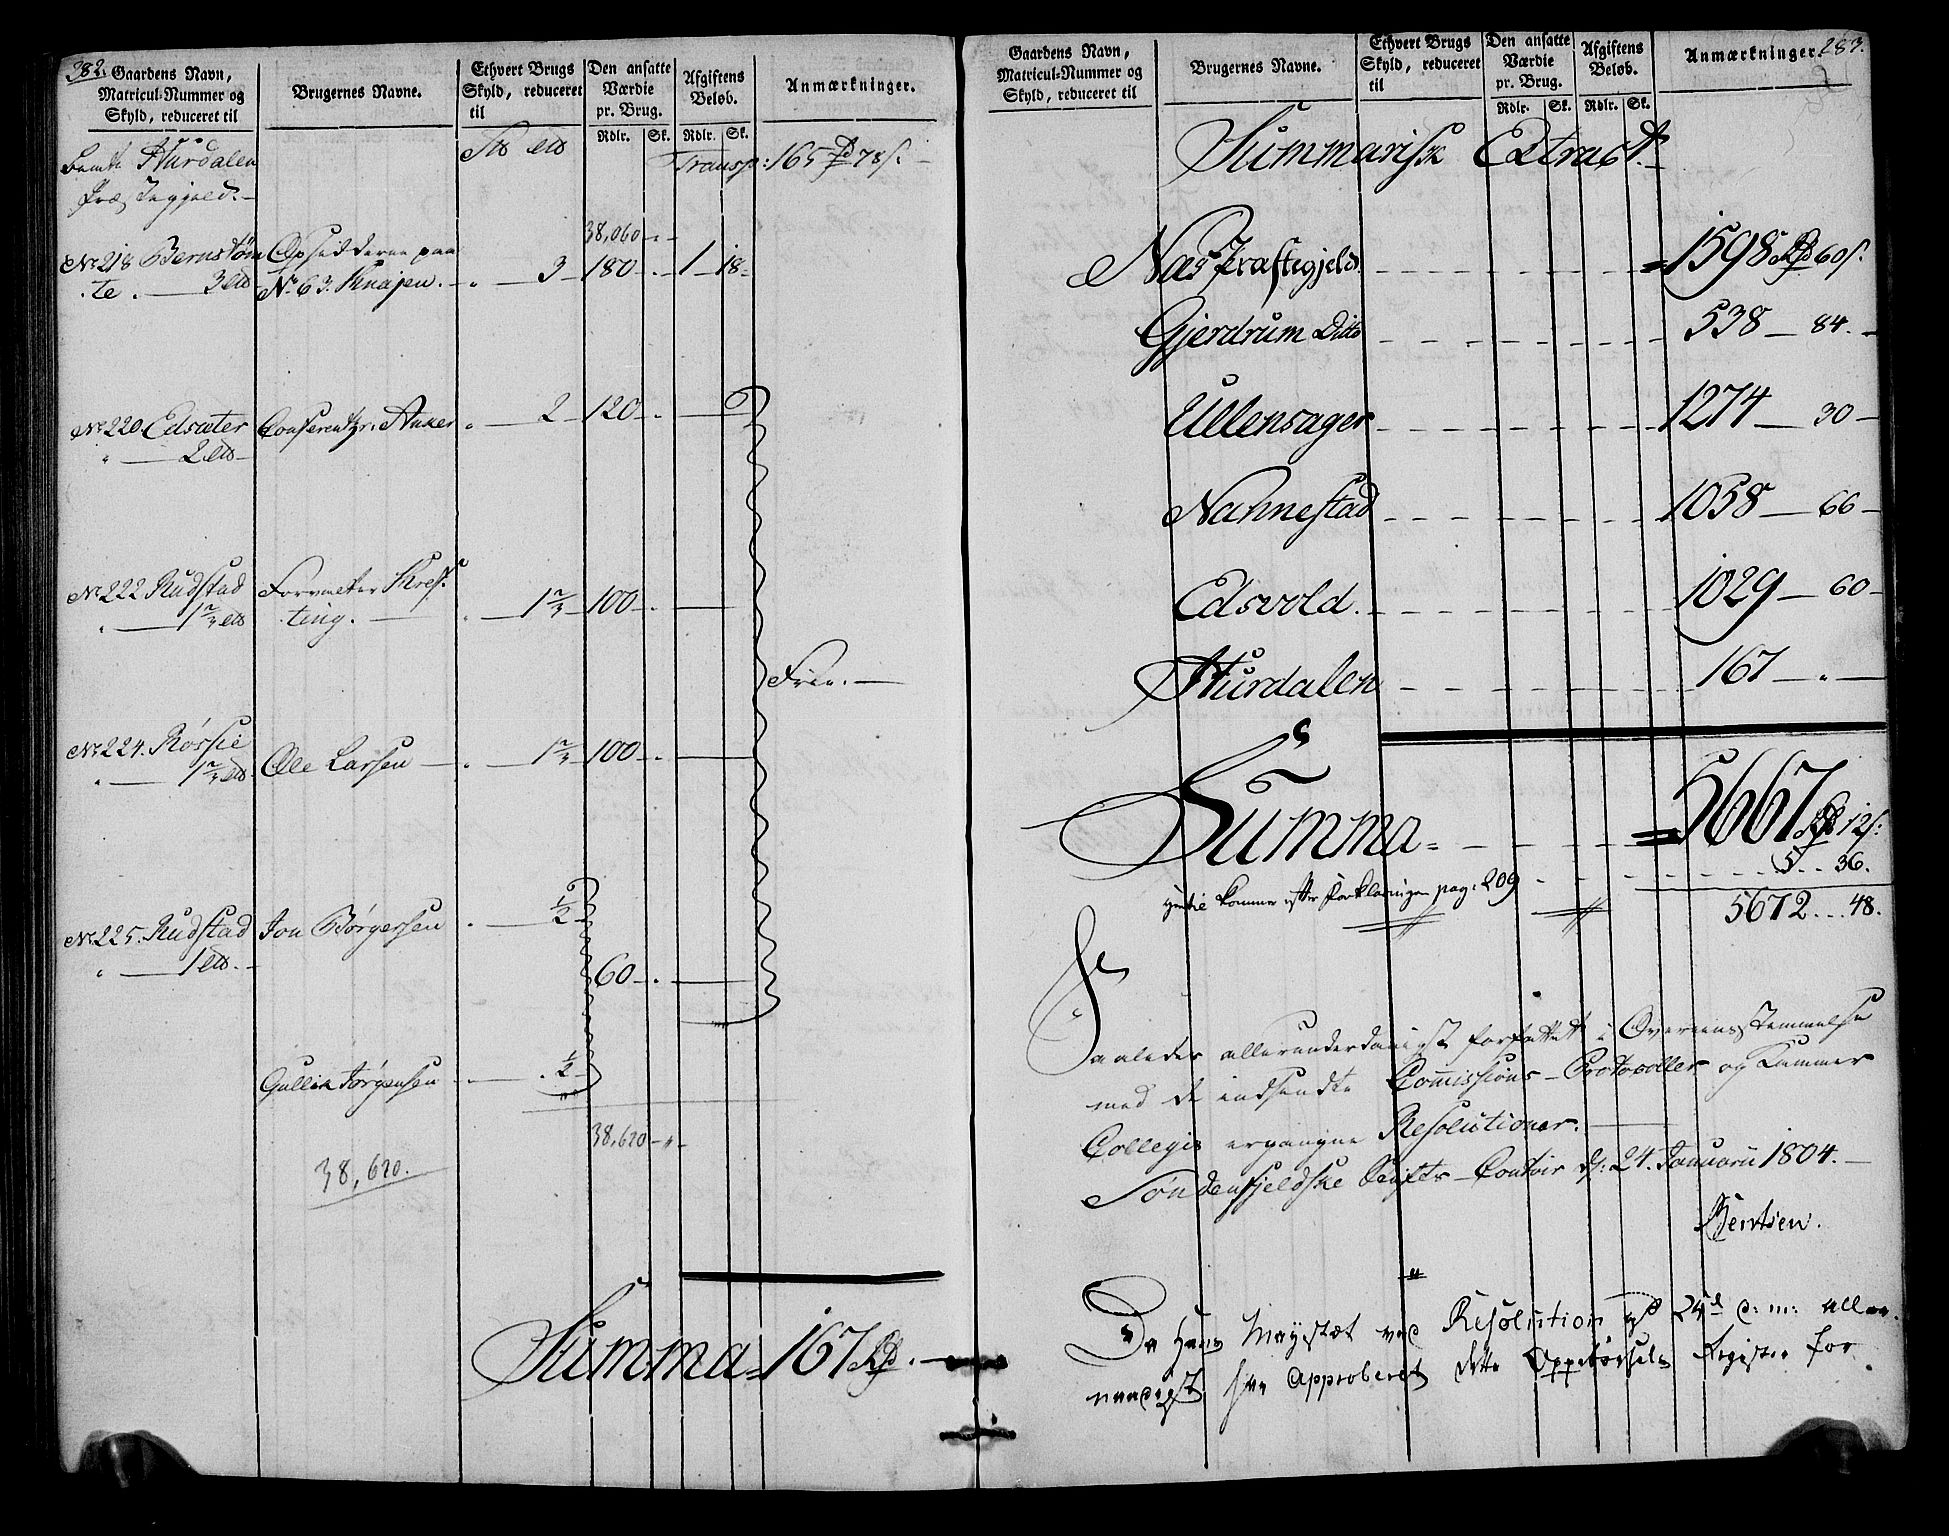 282.
Gaardens Navn,
Matricul-Nummer og
Skyld, reduceret til
Brugernes Navne.
Ethvert Brugs
Skyld, reduceret
til
Den ansatte
Værdie
pr. Brug.
Rdlr. Sk.
Afgiftens
Beløb.
Rdlr. Sk.
Anmærkninger.
Hurdalen
Transp: 165 Rd 78 s.
38,060
No 218 Bernstøm Opsidderne paa 3 180 1 18
te. 3 No 63. Knajen.
No 220. Edsæter Conferentzr. Anker 2 120
2
No 222 Rudstad Forvalter Kref 1 2/3 100
1 2/3 ting.
Frie.
No 224. Røssie
1 2/3 Ole Larsen 1 2/3 100
No 225. Rudstad Jon Børgersen 1/2
1
60
Gullik Jørgensen 1/2
38,620
38,620.
Summa 167 Rd.
283.
Gaardens Navn,
Matricul-Nummer og
Skyld, reduceret til
Brugernes Navne.
Ethvert Brugs
Skyld, reduceret
til
Den ansatte
Værdie
pr. Brug.
Rdlr. Sk.
Afgiftens
Beløb.
Rdlr. Sk.
Anmærkninger.
Summarisk Extract.
Næs Præstegjeld. 1598 Rd 60 s.
Gjerdrum Ditto 538 84.
Ullensager 1274 30
Nannestad 1058 66
Edsvold. 1029 60
Hurdalen 167
Summa 5667 Rd 12 s:
5 36.
kommer efter Forklaringen pag: 209
5672 48.
Saaledes allerunderdanigst forfattet i Overeensstemmelse
med de indsendte Commissions-Protocoller og Kammer
Collegii ergangne Resolutioner.
Søndenfjeldske Skifts-Contoir d: 24. Januarii 1804.
Bentsen.
Da Hans Mayestæt ved Resolution af 24d d: m: aller
naadigst har approberet dette Oppebørsels Register for